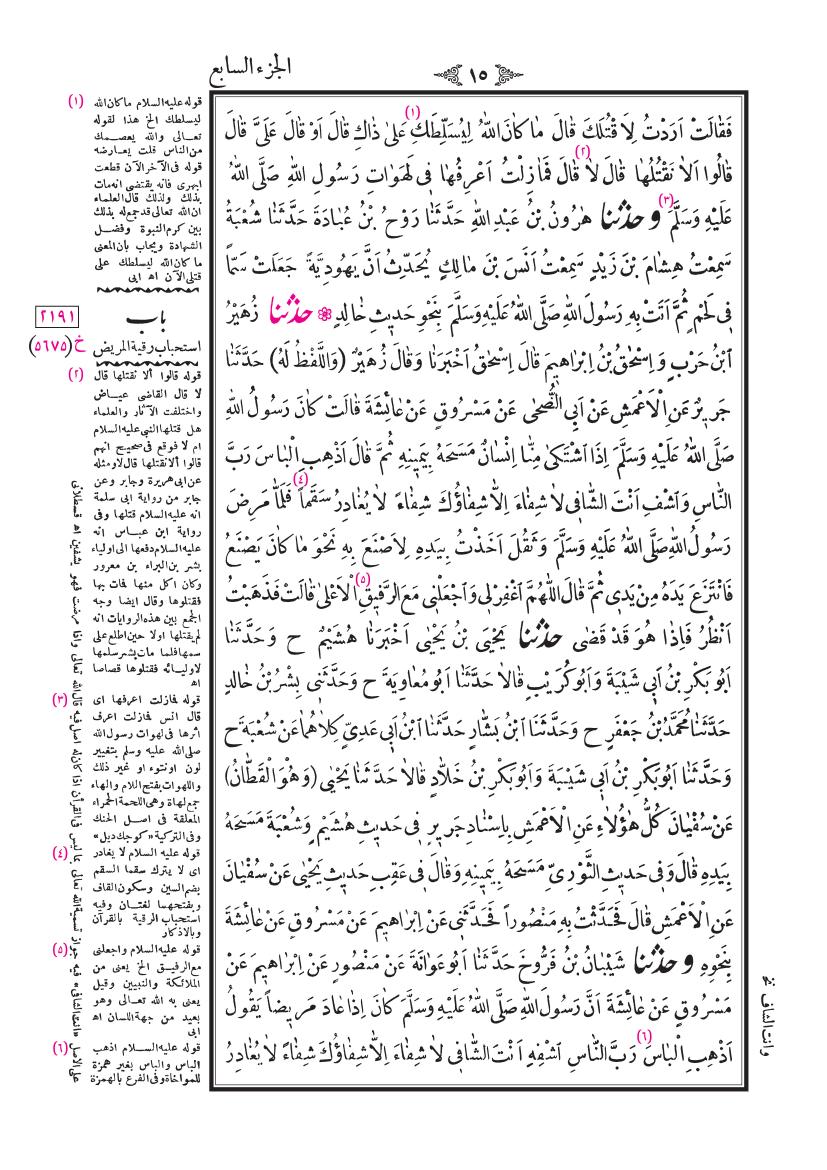 الجزء السابع
١٥
فَقَالَتْ اَرَدْتُ لِاَ قْتُلَكَ قَالَ مَا كَانَ اللهُ لِيُسَلِّطَكِ(١) عَلىٰ ذَاكِ قَالَ اَوْ قَالَ عَلَىَّ قَالَ
قَالُوا اَلاٰ نَقْتُلُهَا قَالَ لاٰ(٢) قَالَ فَمَا زِلْتُ اَعْرِفُهَا فى لَهَوَاتِ رَسُولِ اللهِ صَلَّى اللهُ
عَلَيْهِ وَسَلَّمَ(٣) وحَدَّثَنَا هٰرُونُ بْنُ عَبْدِ اللهِ حَدَّثَنَا رَوْحُ بْنُ عُبَادَةَ حَدَّثَنَا شُعْبَةُ
سَمِعْتُ هِشَامَ بْنَ زَيْدٍ سَمِعْتُ اَنَسَ بْنَ مَالِكٍ يُحَدِّثُ اَنَّ يَهُودِيَّةً جَعَلَتْ سَمّاً
فى لَحْمٍ ثُمَّ اَتَتْ بِهِ رَسُولَ اللهِ صَلَّى اللهُ عَلَيْهِ وَسَلَّمَ بِنَحْوِ حَديثِ خَالِدٍ حَدَّثَنَا زُهَيْرُ
ابْنُ حَرْبٍ وَ اِسْحٰقُ بْنُ اِبْرَاهيمَ قَالَ اِسْحٰقُ اَخْبَرَنَا وَقَالَ زُهَيْرٌ (وَاللَّفْظُ لَهُ) حَدَّثَنَا
جَريرٌ عَنِ الْاَعْمَشِ عَنْ اَبِى الضُّحٰى عَنْ مَسْرُوقٍ عَنْ عَائِشَةَ قَالَتْ كَانَ رَسُولُ اللهِ
صَلَّى اللهُ عَلَيْهِ وَسَلَّمَ اِذَا اشْتَكىٰ مِنَّا اِنْسَانٌ مَسَحَهُ بِيَمينِهِ ثُمَّ قَالَ اَذْهِبِ الْبَاسَ رَبَّ
النَّاسِ وَاشْفِ اَنْتَ الشَّافى لاٰ شِفَاءَ اِلاّٰ شِفَاؤُكَ شِفَاءً لاٰ يُغَادِرُ سَقَماً(٤) فَلَمّٰا مَرِضَ
رَسُولُ اللهِ صَلَّى اللهُ عَلَيْهِ وَسَلَّمَ وَثَقُلَ اَخَذْتُ بِيَدِهِ لِاَصْنَعَ بِهِ نَحْوَ مَا كَانَ يَصْنَعُ
فَانْتَزَعَ يَدَهُ مِنْ يَدى ثُمَّ قَالَ اللّٰهُمَّ اغْفِرْلى وَاجْعَلْنى مَعَ الرَّفيقِ(٥) الْاَعْلىٰ قَالَتْ فَذَهَبْتُ
اَنْظُرُ فَاِذَا هُوَ قَدْ قَضٰى حَدَّثَنَا يَحْيَى بْنُ يَحْيٰى اَخْبَرَنَا هُشَيْمٌ ح وَحَدَّثَنَا
اَبُو بَكْرِ بْنُ اَبى شَيْبَةَ وَاَبُوكُرَيْبٍ قَالاٰ حَدَّثَنَا اَبُو مُعَاوِيَةَ ح وَحَدَّثَنى بِشْرُ بْنُ خَالِدٍ
حَدَّثَنَا مُحَمَّدُ بْنُ جَعْفَرٍ ح وَحَدَّثَنَا ابْنُ بَشَّارٍ حَدَّثَنَا ابْنُ اَبى عَدِىٍّ كِلاٰهُمَا عَنْ شُعْبَةَ ح
وَحَدَّثَنَا اَبُو بَكْرِ بْنُ اَبى شَيْبَةَ وَاَبُو بَكْرِ بْنُ خَلاّٰدٍ قَالاٰ حَدَّثَنَا يَحْيٰى (وَهُوَ الْقَطَّانُ)
عَنْ سُفْيَانَ كُلُّ هٰؤُلاٰءِ عَنِ الْاَعْمَشِ بِاِسْنَادِ جَريرٍ فى حَديثِ هُشَيْمٍ وَشُعْبَةَ مَسَحَهُ
بِيَدِهِ قَالَ وَفى حَديثِ الثَّوْرِىِّ مَسَحَهُ بِيَمينِهِ وَقَالَ فى عَقِبِ حَديثِ يَحْيٰى عَنْ سُفْيَانَ
عَنِ الْاَعْمَشِ قَالَ فَحَدَّثْتُ بِهِ مَنْصُوراً فَحَدَّثَنى عَنْ اِبْرَاهيمَ عَنْ مَسْرُوقٍ عَنْ عَائِشَةَ
بِنَحْوِهِ وحَدَّثَنَا شَيْبَانُ بْنُ فَرُّوخَ حَدَّثَنَا اَبُو عَوَانَةَ عَنْ مَنْصُورٍ عَنْ اِبْرَاهيمَ عَنْ
مَسْرُوقٍ عَنْ عَائِشَةَ اَنَّ رَسُولَ اللهِ صَلَّى اللهُ عَلَيْهِ وَسَلَّمَ كَانَ اِذَا عَادَ مَريضاً يَقُولُ
اَذْهِبِ الْبَاسَ(٦) رَبَّ النَّاسِ اشْفِهِ اَنْتَ الشَّافى لاٰ شِفَاءَ اِلاّٰ شِفَاؤُكَ شِفَاءً لاٰ يُغَادِرُ
(١) قوله عليه السلام ما كان الله
ليسلطك الخ هذا لقوله
تعالى والله يعصمك
من الناس قلت يعارضه
قوله فى الآخر الآن قطعت
ابهرى فانه يقتضى انه مات
بذلك ولذلك قال العلماء
ان الله تعالى قد جمع له بذلك
بين كرم النبوة وفضل
الشهادة ويجاب بان المعنى
ما كان الله ليسلطك على
قتلى الآن اه ابى
باب
٢١٩١
استحباب رقية المريض
خ (٥٦٧٥)
(٢) قوله قالوا ألا نقتلها قال
لا قال القاضى عياض
واختلفت الآثار والعلماء
هل قتلها النبى عليه السلام
ام لا فوقع فى صحيح انهم
قالوا ألا نقتلها قال لا ومثله
عن ابى هريرة وجابر وعن
جابر من رواية ابى سلمة
انه عليه السلام قتلها وفى
رواية ابن عباس انه
عليه السلام دفعها الى اولياء
بشر بن البراء بن معرور
وكان اكل منها فمات بها
فقتلوها وقال ايضا وجه
الجمع بين هذه الروايات انه
لم يقتلها اولا حين اطلع على
سمها فلما مات بشر سلمها
لاوليائه فقتلوها قصاصا
اه
(٣) قوله فمازلت اعرفها اى
قال انس فمازلت اعرف
اثرها فى لهوات رسول الله
صلى الله عليه وسلم بتغيير
لون او نتوء او غير ذلك
واللهوات بفتح اللام والهاء
جمع لهاة وهى اللحمة الحمراء
المعلقة فى اصل الحنك
وفى التركية «كوجك ديل»
(٤) قوله عليه السلام لا يغادر
اى لا يترك سقما السقم
بضم السين وسكون القاف
وبفتحهما لغتان وفيه
استحباب الرقية بالقرآن
وبالاذكار
(٥) قوله عليه السلام واجعلنى
مع الرفيق الخ يعنى من
الملائكة والنبيين وقيل
يعنى به الله تعالى وهو
بعيد من جهة اللسان اه
ابى
(٦) قوله عليه السلام اذهب
الباس والباس بغير همزة
للمواخاة وفى الفرع بالهمزة
على الاصل «انت الشافى» فيه جواز تسمية الله تعالى بما ليس فى القرآن اذا كان له اصل فيه قال الله تعالى واذا مرضت فهو يشفين اه قسطلانى
وانت الشاف نخ